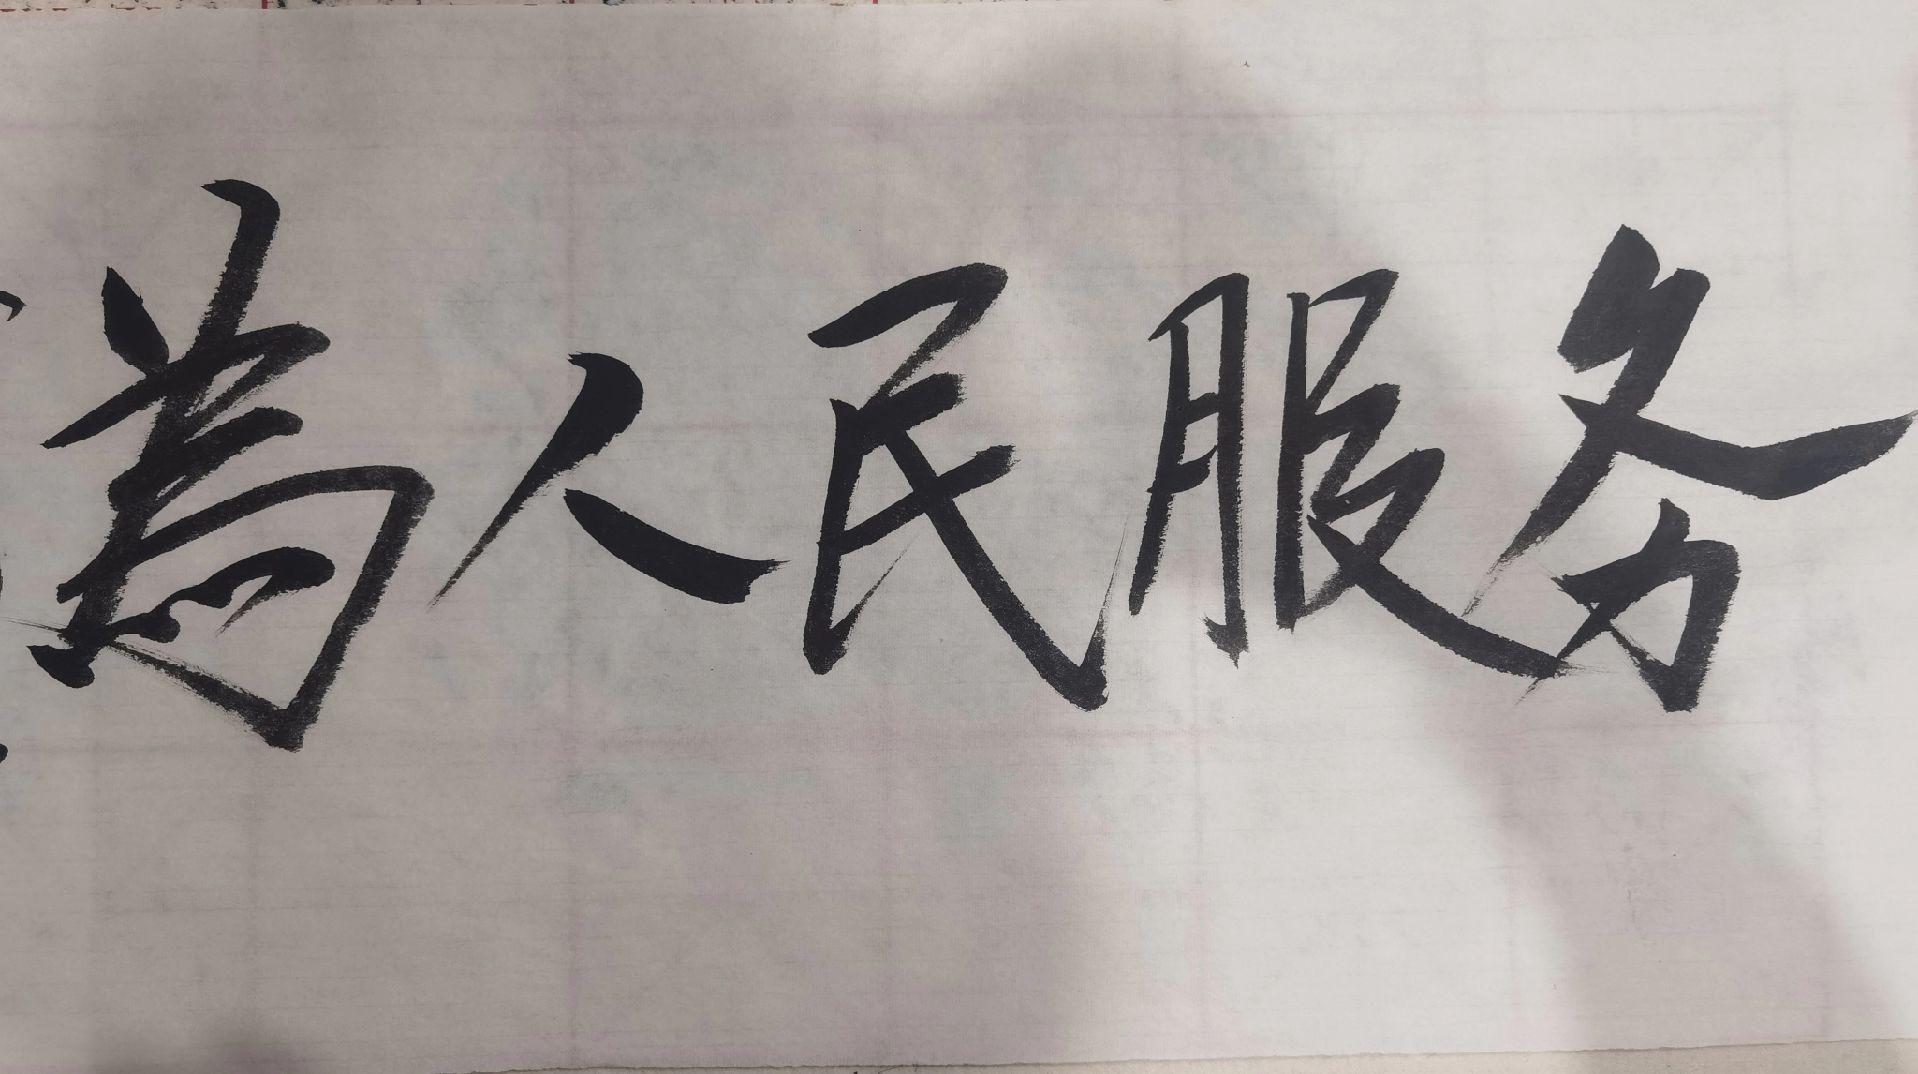 為人民服务